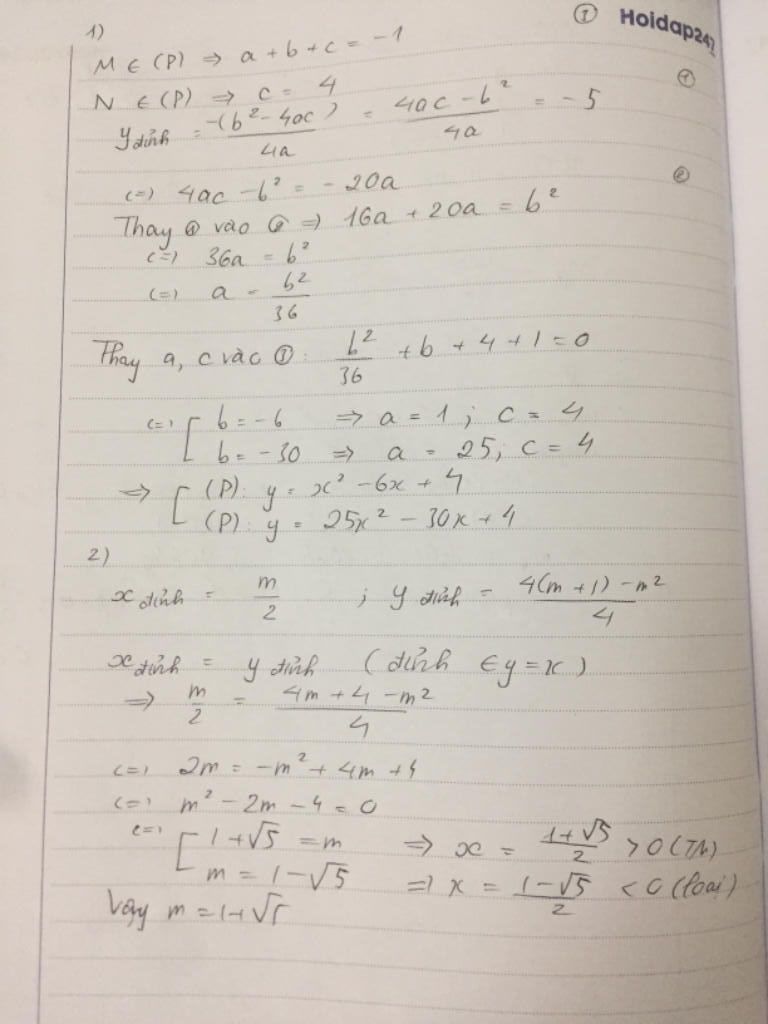 ① Hoidap247
1)
M ∈ (P) ⇒ a + b + c = -1
N ∈ (P) ⇒ c = 4 ①
y đỉnh = -(b² - 4ac)/4a = (4ac - b²)/4a = -5
(=) 4ac - b² = -20a ②
Thay ① vào ② ⇒ 16a + 20a = b²
(=) 36a = b²
(=) a = b²/36
Thay a, c vào ①: b²/36 + b + 4 + 1 = 0
(=) [ b = -6 ⇒ a = 1; c = 4
b = -30 ⇒ a = 25; c = 4
⇒ [ (P): y = x² - 6x + 4
(P): y = 25x² - 30x + 4
2)
x đỉnh = m/2 ; y đỉnh = (4(m + 1) - m²)/4
x đỉnh = y đỉnh (đỉnh ∈ y = x)
⇒ m/2 = (4m + 4 - m²)/4
(=) 2m = -m² + 4m + 4
(=) m² - 2m - 4 = 0
(=) [ 1 + √5 = m ⇒ x = (1 + √5)/2 > 0 (TM)
m = 1 - √5 =) x = (1 - √5)/2 < 0 (loại)
Vậy m = 1 + √5